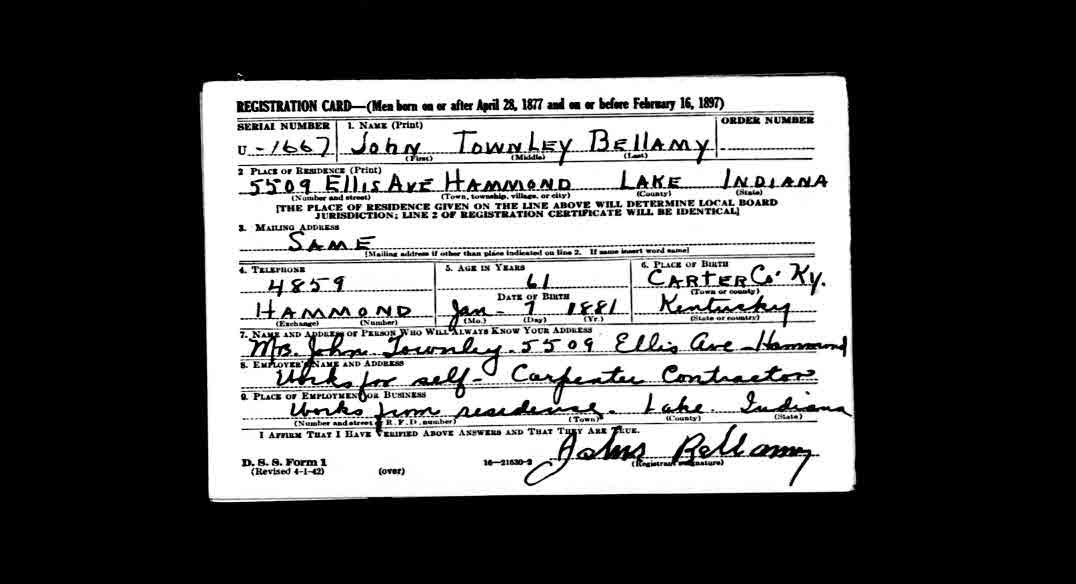 REGISTRATION CARD—(Men born on or after April 28, 1877 and on or before February 16, 1897)
SERIAL NUMBER 1. NAME (Print) ORDER NUMBER
U -1667 JOHN TOWNLEY BELLAMY
(First) (Middle) (Last)
2 PLACE OF RESIDENCE (Print)
5509 ELLIS AVE HAMMOND LAKE INDIANA
(Number and street) (Town, township, village, or city) (County) (State)
[THE PLACE OF RESIDENCE GIVEN ON THE LINE ABOVE WILL DETERMINE LOCAL BOARD
JURISDICTION; LINE 2 OF REGISTRATION CERTIFICATE WILL BE IDENTICAL]
3. MAILING ADDRESS
SAME
[Mailing address if other than place indicated on line 2. If same insert word same]
4. TELEPHONE 5. AGE IN YEARS 6. PLACE OF BIRTH
4859 61 CARTER Co' Ky.
DATE OF BIRTH (Town or county)
HAMMOND Jan - 7 1881 Kentucky
(Exchange) (Number) (Mo.) (Day) (Yr.) (State or country)
7. NAME AND ADDRESS OF PERSON WHO WILL ALWAYS KNOW YOUR ADDRESS
John Townley - 5509 Ellis Ave - Hammond
8. EMPLOYER'S NAME AND ADDRESS
Works for self - Carpenter Contractor
9. PLACE OF EMPLOYMENT OR BUSINESS
Works from residence. Lake. Indiana
(Number and street or R. F. D. number) (Town) (County) (State)
I AFFIRM THAT I HAVE VERIFIED ABOVE ANSWERS AND THAT THEY ARE TRUE.
Bellamy
D. S. S. Form 1 16—21630-2 (Registrant's signature)
(Revised 4-1-42) (over)